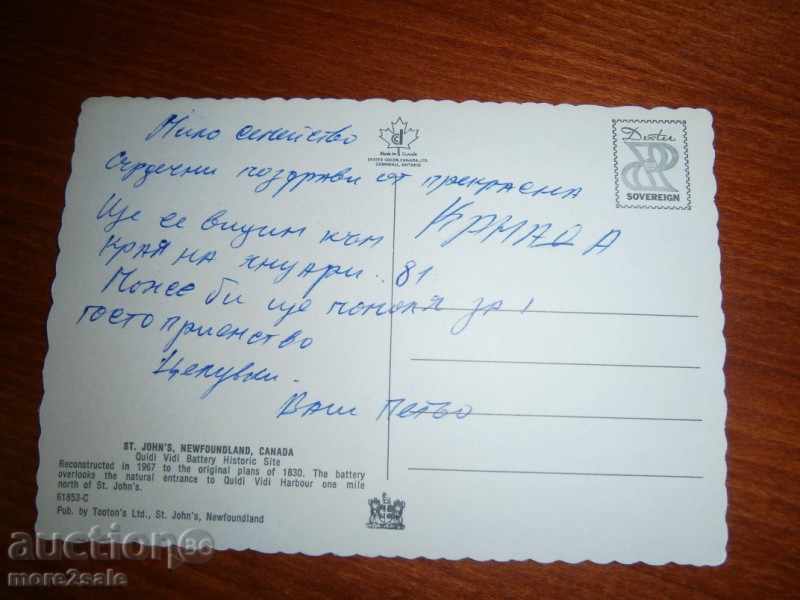 Мило семейство
Сърдечни поздрави от прекрасна
КАНАДА
Ще се видим към
края на януари .. 81
Може би ще помоля за 1
гостоприемство
Целувки.
Ваш Петьо
Made in Canada
DEXTER COLOR, CANADA, LTD.
CORNWALL, ONTARIO
Dexter
SOVEREIGN
ST. JOHN'S, NEWFOUNDLAND, CANADA
Quidi Vidi Battery Historic Site
Reconstructed in 1967 to the original plans of 1830. The battery
overlooks the natural entrance to Quidi Vidi Harbour one mile
north of St. John's.
61853-C
Pub. by Tooton's Ltd., St. John's, Newfoundland
auction.bg
more2sale